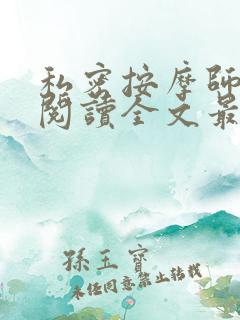 私密按摩師
閱讀全文最
孫玉寶
未經同意禁止轉載